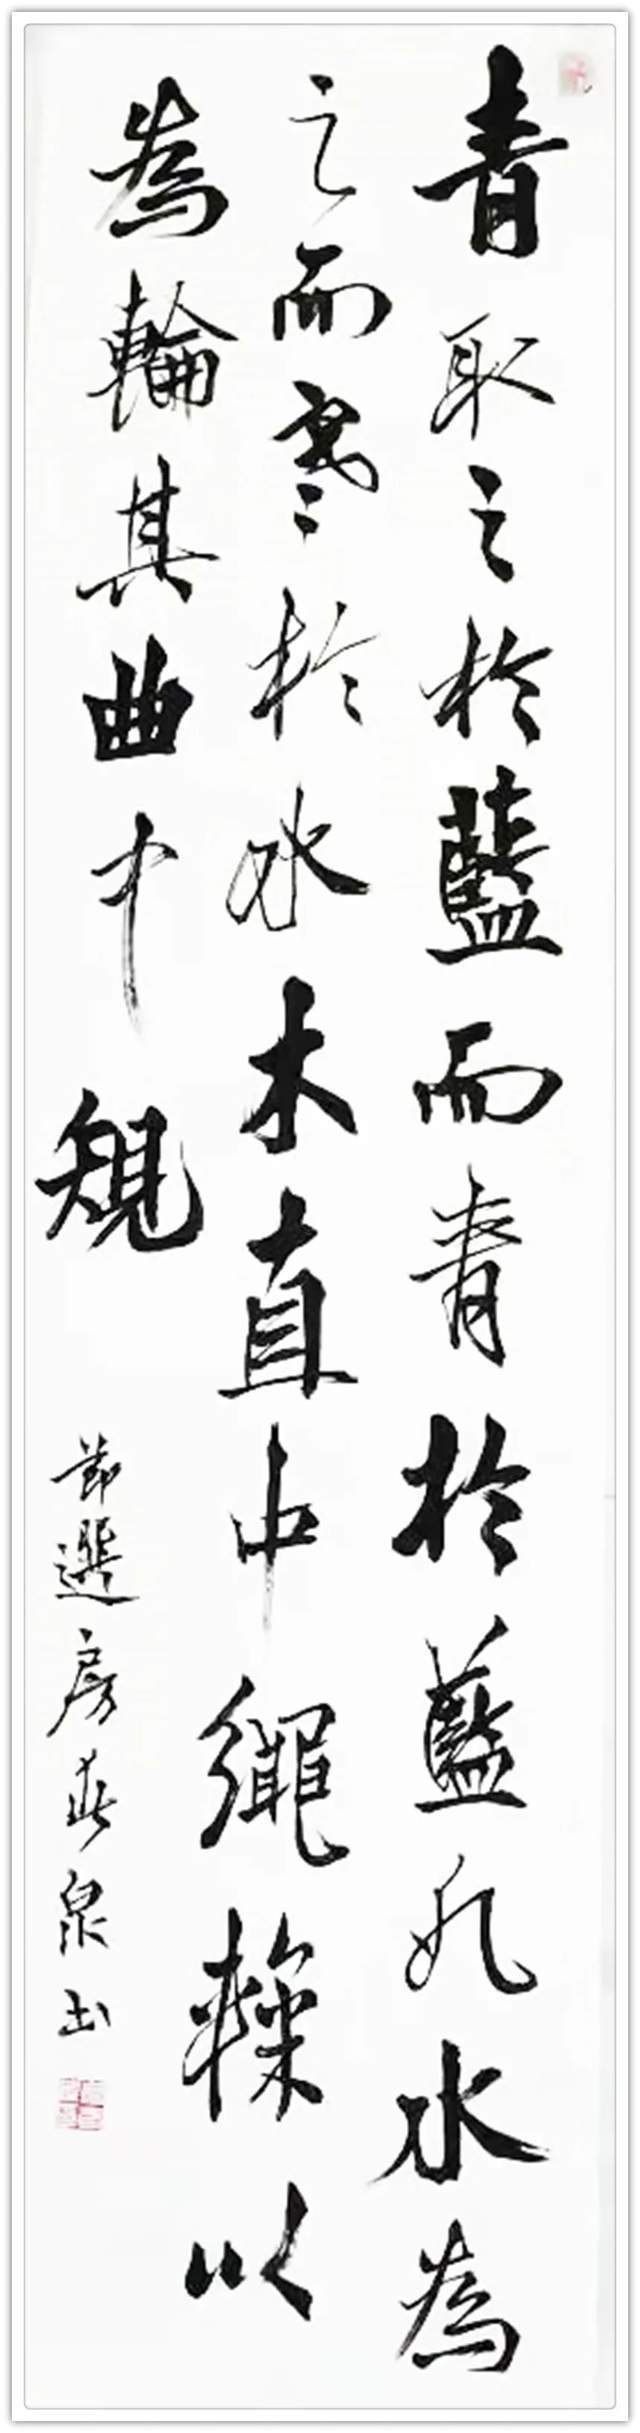 青取之於藍而青於藍冰水為
之而寒於水木直中繩輮以
為輪其曲中規
節選房泉书